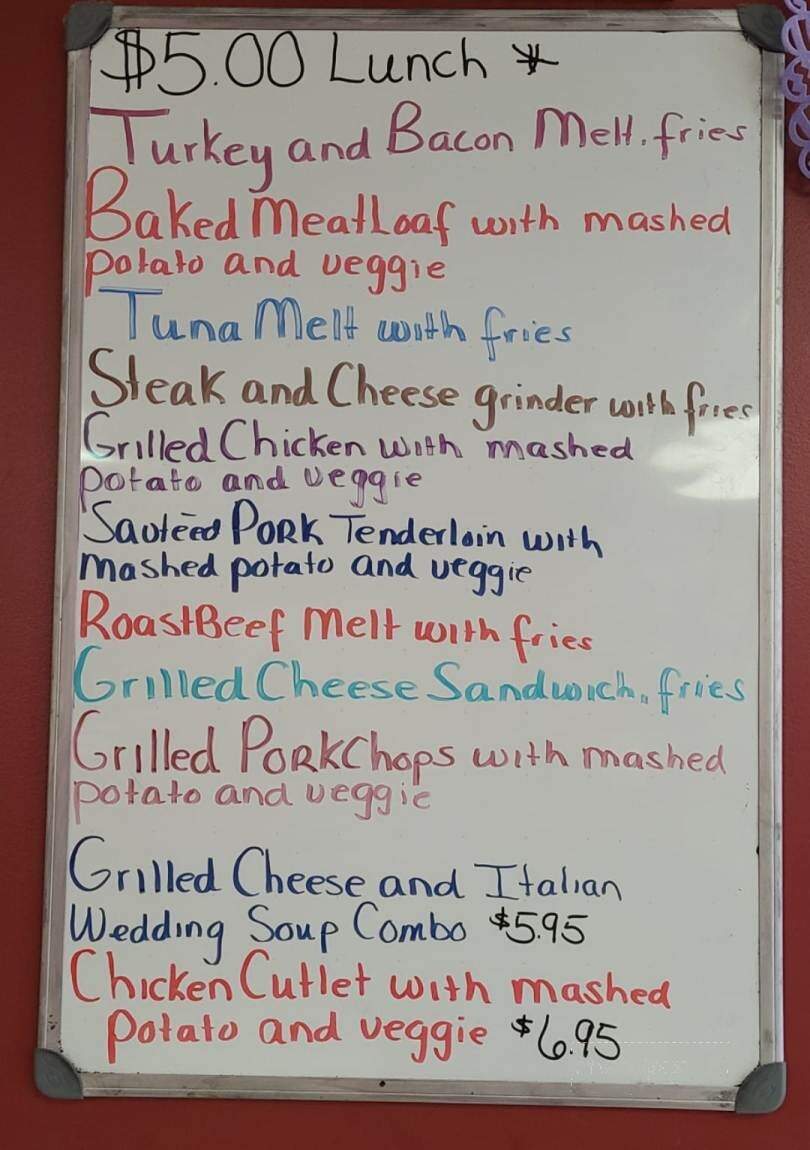 $5.00 Lunch *
Turkey and Bacon Melt. fries
Baked MeatLoaf with mashed
potato and veggie
Tuna Melt with fries
Steak and Cheese grinder with fries
Grilled Chicken with mashed
potato and veggie
Sauteed Pork Tenderloin with
mashed potato and veggie
RoastBeef Melt with fries
Grilled Cheese Sandwich. fries
Grilled PorkChops with mashed
potato and veggie
Grilled Cheese and Italian
Wedding Soup Combo $5.95
Chicken Cutlet with mashed
potato and veggie $6.95